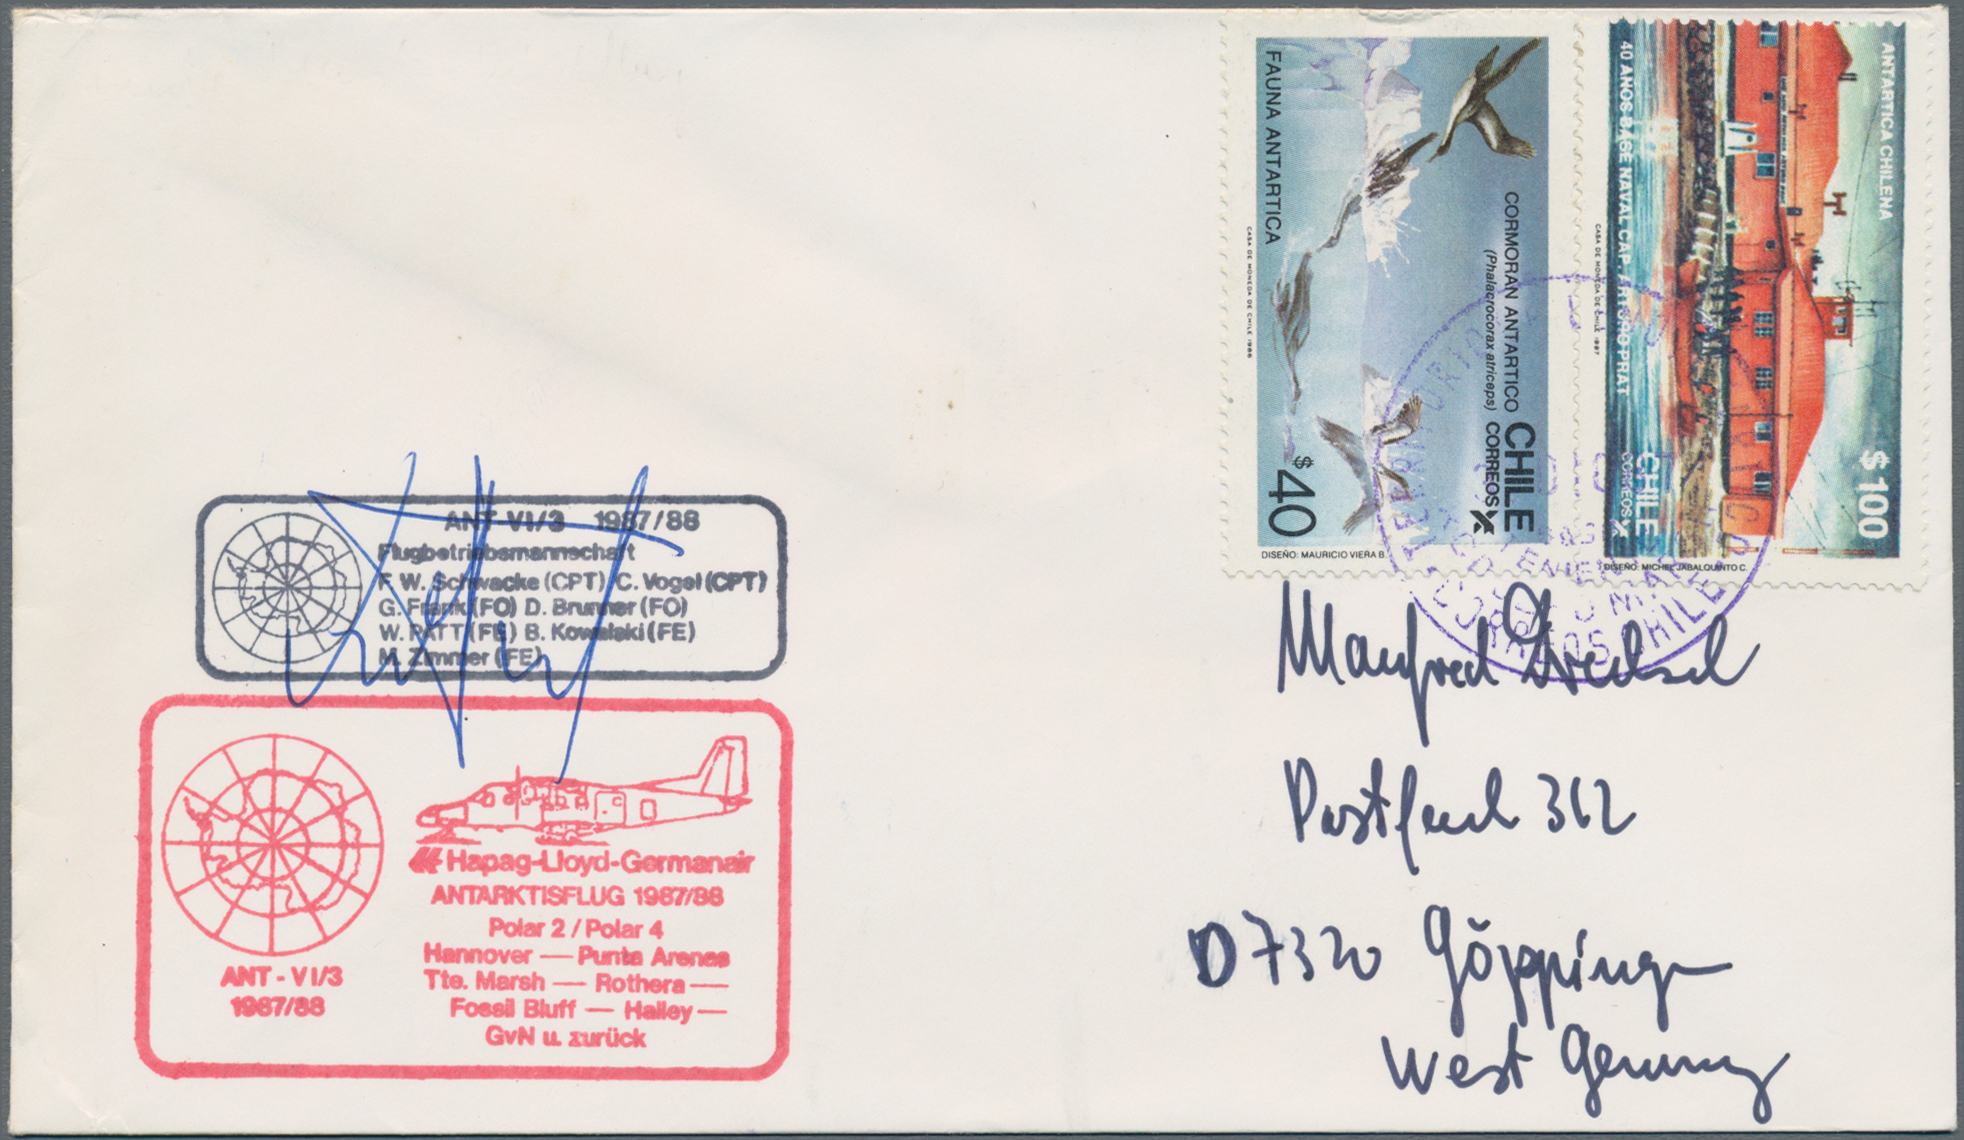 FAUNA ANTARTICA
CORMORAN ANTARTICO
(Phalacrocorax atriceps)
CHILE
CORREOS
$40
CASA DE MONEDA DE CHILE 1986
DISEÑO: MAURICIO VIERA B.
ANTARTICA CHILENA
40 AÑOS BASE NAVAL CAP. ARTURO PRAT
$100
CHILE
CORREOS
CASA DE MONEDA DE CHILE 1987
DISEÑO: MICHEL JABALQUINTO C.
CORREOS CHILE
ANT-VI/3 1987/88
Flugbetriebsmannschaft
F. W. Schwacke (CPT) C. Vogel (CPT)
G. Frank (FO) D. Brunner (FO)
W. PATT (FE) B. Kowalski (FE)
M. Zimmer (FE)
Hapag-Lloyd-Germanair
ANTARKTISFLUG 1987/88
Polar 2 / Polar 4
Hannover — Punta Arenas
Tte. Marsh — Rothera —
Fossil Bluff — Halley —
GvN u. zurück
ANT - VI/3
1987/88
Manfred
Postfach 362
D 7320 Göppingen
West Germany